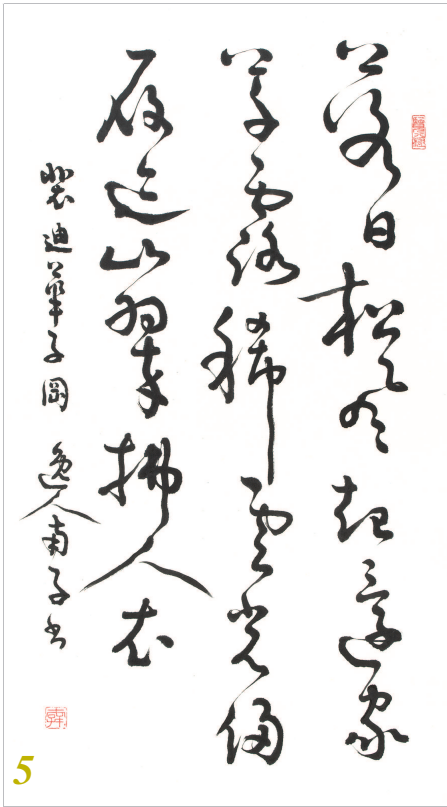 落日松風起還家
草露稀雲光侵
履迹山翠拂人衣
裴迪華子岡 逸人南子书
5